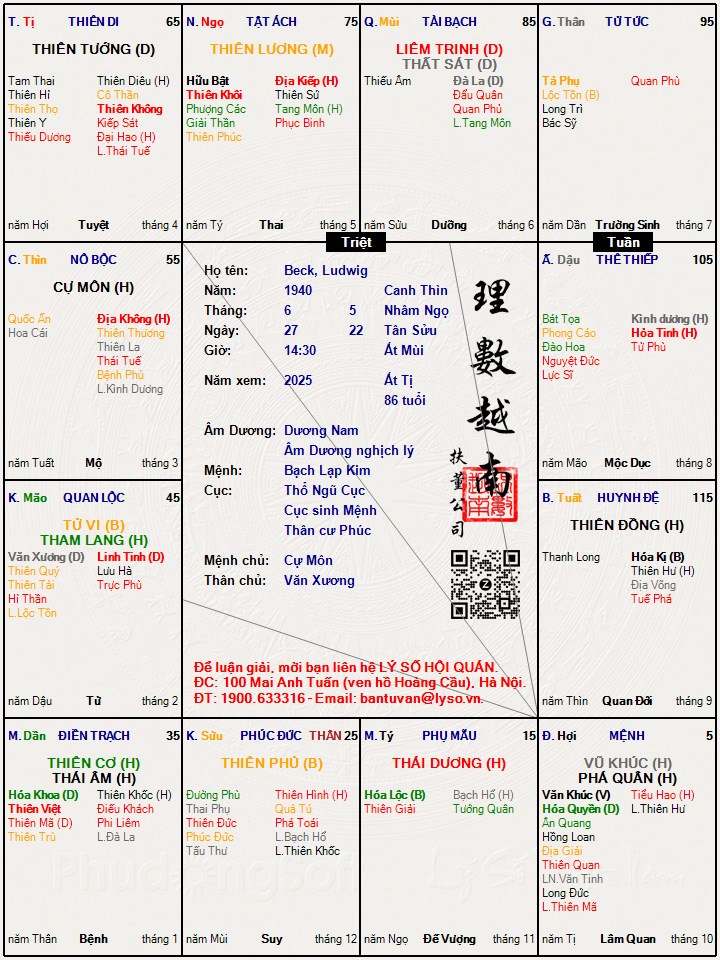 T. Tị THIÊN DI 65
THIÊN TƯỚNG (D)
Tam Thai Thiên Diêu (H)
Thiên Hỉ Cô Thần
Thiên Thọ Thiên Không
Thiên Y Kiếp Sát
Thiếu Dương Đại Hao (H)
L.Thái Tuế
năm Hợi Tuyệt tháng 4
N. Ngọ TẬT ÁCH 75
THIÊN LƯƠNG (M)
Hữu Bật Địa Kiếp (H)
Thiên Khôi Thiên Sứ
Phượng Các Tang Môn (H)
Giải Thần Phục Binh
Thiên Phúc
năm Tý Thai tháng 5
Q. Mùi TÀI BẠCH 85
LIÊM TRINH (D)
THẤT SÁT (D)
Thiếu Âm Đà La (D)
Đẩu Quân
Quan Phủ
L.Tang Môn
năm Sửu Dưỡng tháng 6
G. Thân TỬ TỨC 95
Tả Phụ Quan Phù
Lộc Tồn (B)
Long Trì
Bác Sỹ
năm Dần Trường Sinh tháng 7
Triệt
Tuần
C. Thìn NÔ BỘC 55
CỰ MÔN (H)
Quốc Ấn Địa Không (H)
Hoa Cái Thiên Thương
Thiên La
Thái Tuế
Bệnh Phù
L.Kình Dương
năm Tuất Mộ tháng 3
Họ tên: Beck, Ludwig
Năm: 1940 Canh Thìn
Tháng: 6 5 Nhâm Ngọ
Ngày: 27 22 Tân Sửu
Giờ: 14:30 Ất Mùi
Năm xem: 2025 Ất Tị
86 tuổi
Âm Dương: Dương Nam
Âm Dương nghịch lý
Mệnh: Bạch Lạp Kim
Cục: Thổ Ngũ Cục
Cục sinh Mệnh
Thân cư Phúc
Mệnh chủ: Cự Môn
Thân chủ: Văn Xương
理數越南
扶董公司
Để luận giải, mời bạn liên hệ LÝ SỐ HỘI QUÁN.
ĐC: 100 Mai Anh Tuấn (ven hồ Hoàng Cầu), Hà Nội.
ĐT: 1900.633316 - Email: bantuvan@lyso.vn.
Ấ. Dậu THÊ THIẾP 105
Bát Tọa Kình dương (H)
Phong Cáo Hỏa Tinh (H)
Đào Hoa Tử Phù
Nguyệt Đức
Lực Sĩ
năm Mão Mộc Dục tháng 8
K. Mão QUAN LỘC 45
TỬ VI (B)
THAM LANG (H)
Văn Xương (D) Linh Tinh (D)
Thiên Quý Lưu Hà
Thiên Tài Trực Phù
Hỉ Thần
L.Lộc Tồn
năm Dậu Tử tháng 2
B. Tuất HUYNH ĐỆ 115
THIÊN ĐỒNG (H)
Thanh Long Hóa Kị (B)
Thiên Hư (H)
Địa Võng
Tuế Phá
năm Thìn Quan Đới tháng 9
M. Dần ĐIỀN TRẠCH 35
THIÊN CƠ (H)
THÁI ÂM (H)
Hóa Khoa (D) Thiên Khốc (H)
Thiên Việt Điếu Khách
Thiên Mã (D) Phi Liêm
Thiên Trù L.Đà La
năm Thân Bệnh tháng 1
K. Sửu PHÚC ĐỨC THÂN 25
THIÊN PHỦ (B)
Đường Phù Thiên Hình (H)
Thai Phụ Quả Tú
Thiên Đức Phá Toái
Phúc Đức L.Bạch Hổ
Tấu Thư L.Thiên Khốc
năm Mùi Suy tháng 12
M. Tý PHỤ MẪU 15
THÁI DƯƠNG (H)
Hóa Lộc (B) Bạch Hổ (H)
Thiên Giải Tướng Quân
năm Ngọ Đế Vượng tháng 11
Đ. Hợi MỆNH 5
VŨ KHÚC (H)
PHÁ QUÂN (H)
Văn Khúc (V) Tiểu Hao (H)
Hóa Quyền (D) L.Thiên Hư
Ân Quang
Hồng Loan
Địa Giải
Thiên Quan
LN.Văn Tinh
Long Đức
L.Thiên Mã
năm Tị Lâm Quan tháng 10